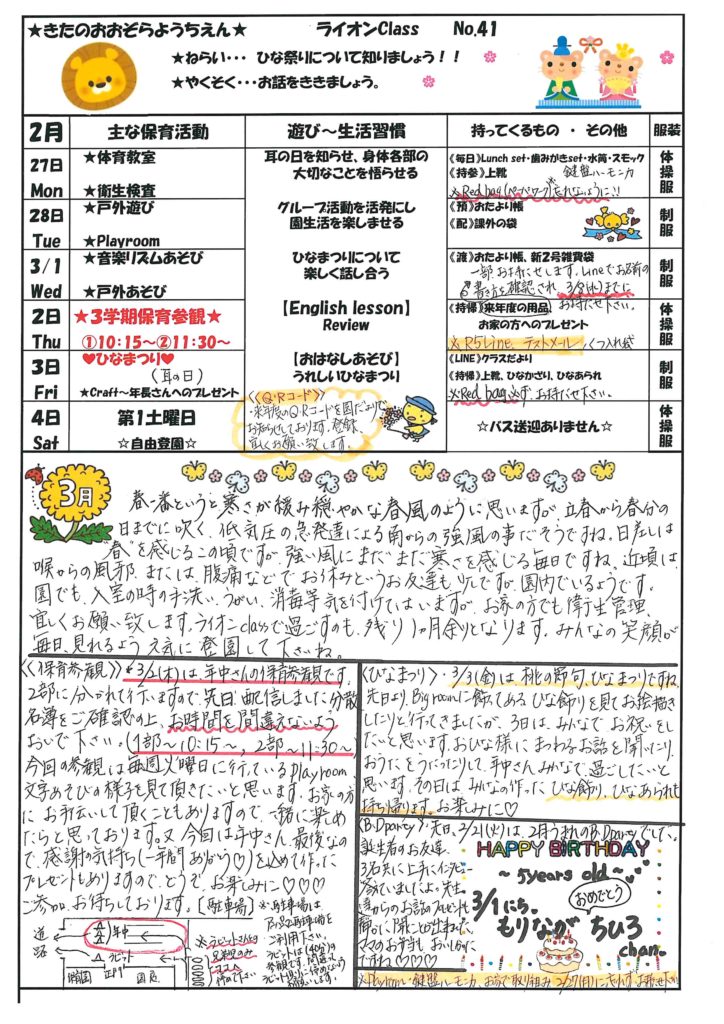 ★きたのおおぞらようちえん★ ライオンClass No.41
★ねらい・・・ ひな祭りについて知りましょう！！
★やくそく・・・お話をききましょう。
2月 主な保育活動 遊び～生活習慣 持ってくるもの ・ その他 服装
27日 Mon
★体育教室
★衛生検査
耳の日を知らせ、身体各部の
大切なことを悟らせる
《毎日》Lunch set・歯みがきset・水筒・スモック
《持参》上靴 鍵盤ハーモニカ
※Red bag(ペーパーワーク)忘れないように!!
体操服
28日 Tue
★戸外遊び
★Playroom
グループ活動を活発にし
園生活を楽しませる
《預》おたより帳
《配》課外の袋
制服
3/1 Wed
★音楽リズムあそび
★戸外あそび
ひなまつりについて
楽しく話し合う
《渡》おたより帳、新2号雑貨袋
一部お持たせします。Lineでお名前の
書き方を確認され、3/8(水)までに
お持たせ下さい。
制服
2日 Thu
★3学期保育参観★
①10:15～②11:30～
【English lesson】
Review
《持帰》来年度の用品、
お家の方へのプレゼント
※R5Line、テストメール
くつ入れ袋
体操服
3日 Fri
♥ひなまつり♥
(耳の日)
★Craft～年長さんへのプレゼント
【おはなしあそび】
うれしいひなまつり
《LINE》クラスだより
《持帰》上靴、ひなかざり、ひなあられ
※Red bag必ず、お持たせ下さい。
制服
4日 Sat
第1土曜日
☆自由登園☆
《Q・Rコード》
・来年度のQ.Rコードを園だよりで
お知らせしております。登録、
宜しくお願い致します。
☆バス送迎ありません☆
体操服
3月
春一番というと寒さが緩み穏やかな春風のように思いますが、立春から春分の
日までに吹く、低気圧の急発達による南からの強風の事だそうですね。日差しは
春を感じるこの頃ですが、強い風にまだまだ寒さを感じる毎日ですね。近頃は、
喉からの風邪、または、腹痛などでお休みというお友達も少しですが、園内でいるようです。
園でも、入室の時の手洗い、うがい、消毒等気を付けてはいますが、お家の方でも衛生管理、
宜しくお願い致します。ライオンclassで過ごすのも、残り1ヶ月余りとなります。みんなの笑顔が
毎日、見れるよう元気に登園して下さいね。
《保育参観》★3/2(木)は、年中さんの保育参観です。
2部に分かれて行いますので、先日、配信しました分散
名簿をご確認の上、お時間を間違えないよう
おいで下さい。(1部～10:15～、2部～11:30～)
今回の参観は毎週火曜日に行っているplayroom
文字あそびの様子を見て頂きたいと思います。お家の方
にお手伝いして頂くこともありますので、一緒に楽しめ
たらと思っております。又、今回は年中さん、最後なの
で、感謝の気持ち(一年間ありがとう♡)を込めて作った
プレゼントもありますので、どうぞ、お楽しみに♡♡♡
ご参加、お待ちしております。[駐車場]
道路
年中
ラビット
正門
園庭
《ひなまつり》・3/3(金)は、桃の節句、ひなまつりですね。
先日より、Big roomに飾ってある、ひな飾りを見てお絵描き
したりと行ってきましたが、3日は、みんなでお祝いをし
たいと思います。おひな様にまつわるお話を聞いたり、
おうたをうたったりして、年中さんみんなで過ごしたいと
思います。その日は、みんなの作った、ひな飾り、ひなあられも
持ち帰ります。お楽しみに♡
《B.Dparty》・先日、2/21(火)は、2月うまれのB.Dpartyでした。
誕生者のお友達、
3名共に上手にインタビュー
ママのお弁当、おいしかった
ですね♡♡♡♡
HAPPY BIRTHDAY
～5years old～
おめでとう
3/1にち
もりなが ちひろ
chan。
※Playroom・鍵盤ハーモニカ、お家で取り組み、2/27(月)に